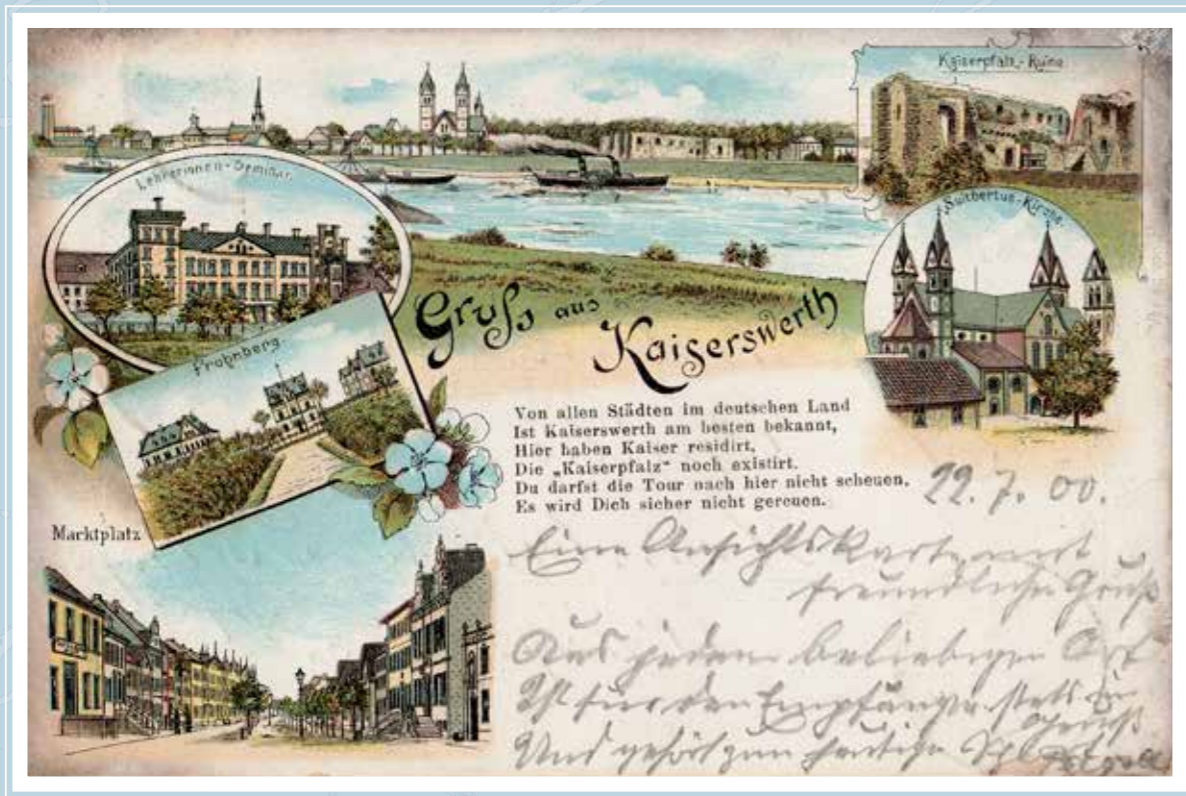 Kaiserpfalz-Ruine
Lehrerinnen-Seminar.
Suitbertus-Kirche.
Gruss aus
Kaiserswerth
Frohnberg.
Von allen Städten im deutschen Land
Ist Kaiserswerth am besten bekannt,
Hier haben Kaiser residirt,
Die „Kaiserpfalz“ noch existirt.
Du darfst die Tour nach hier nicht scheuen,
Es wird Dich sicher nicht gereuen.
22. 7. 00.
Marktplatz
Eine Ansichtskarte mit
Gruß
Aus jedem beliebigen Ort
Ist für den Empfänger stets ein
Genuß
Und gehört zum